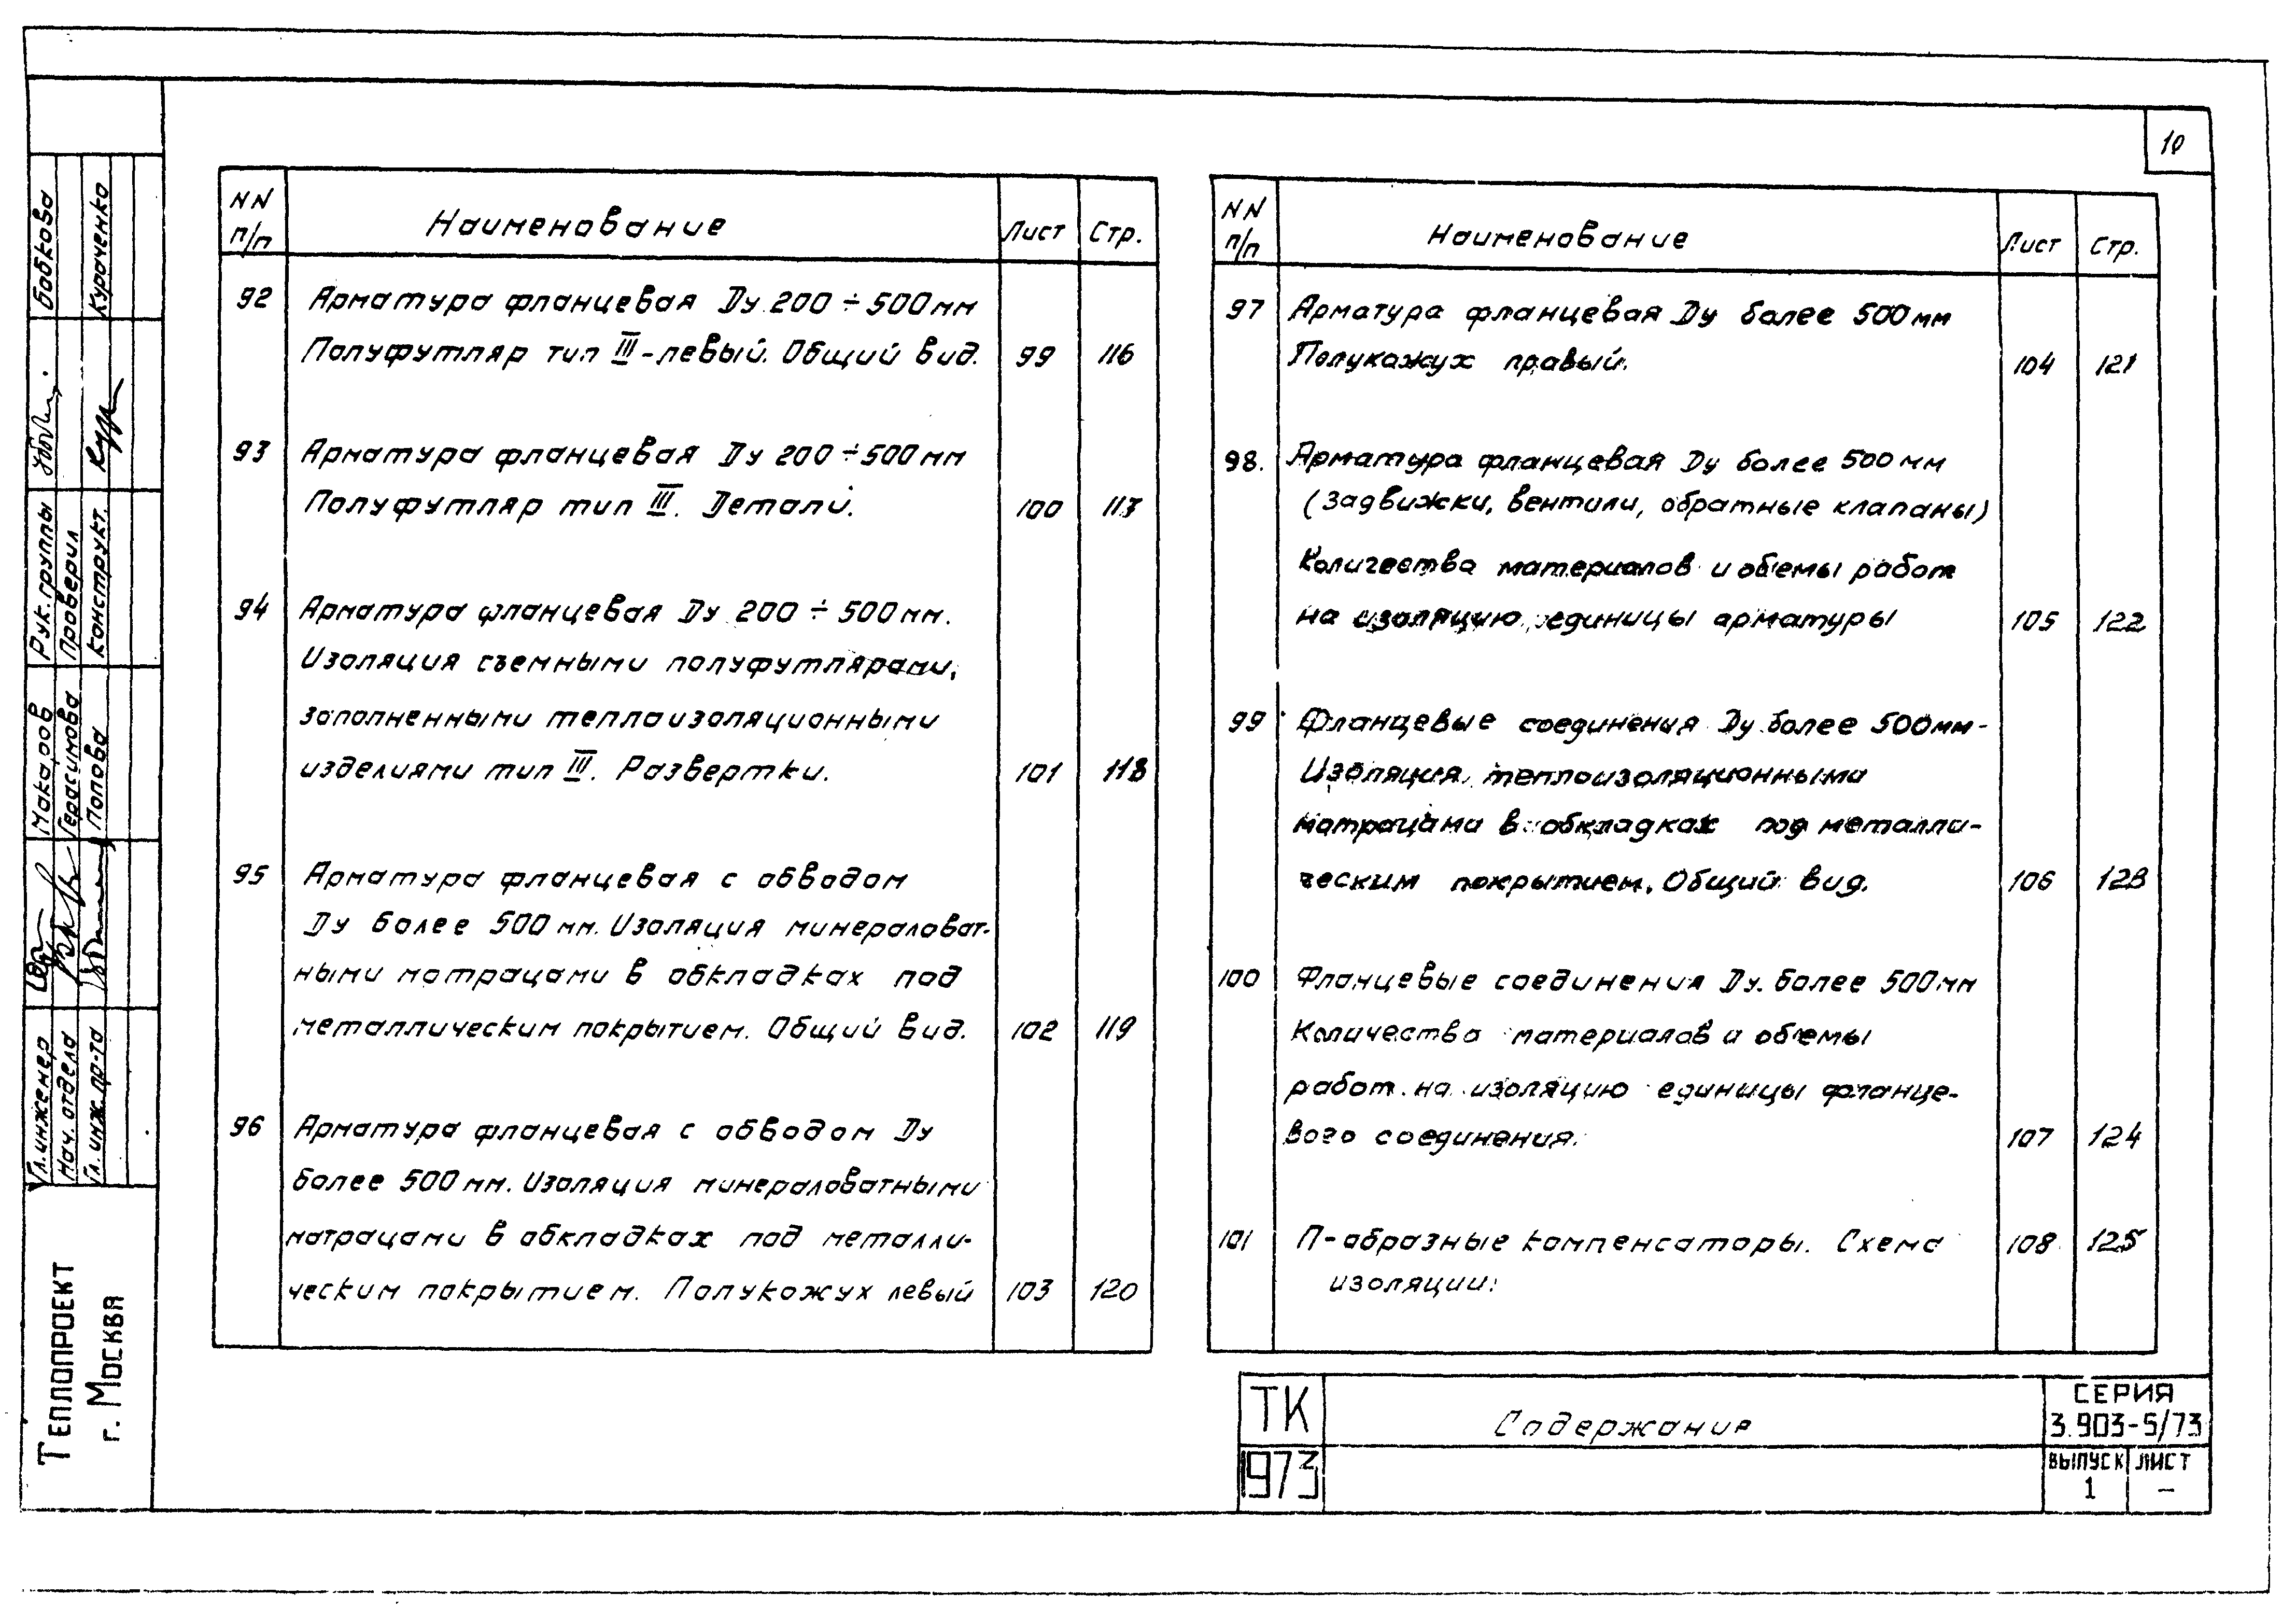 10
NN п/п Наименование Лист Стр.
92 Арматура фланцевая Dу 200 ÷ 500 мм
Полуфутляр тип III - левый. Общий вид. 99 116
93 Арматура фланцевая Dу 200 ÷ 500 мм
Полуфутляр тип III. Детали. 100 113
94 Арматура фланцевая Dу 200 ÷ 500 мм.
Изоляция съемными полуфутлярами,
заполненными теплоизоляционными
изделиями тип III. Развертки. 101 118
95 Арматура фланцевая с обводом
Dу более 500 мм. Изоляция минераловат-
ными матрацами в обкладках под
металлическим покрытием. Общий вид. 102 119
96 Арматура фланцевая с обводом Dу
более 500 мм. Изоляция минераловатными
матрацами в обкладках под металли-
ческим покрытием. Полукожух левый 103 120
NN п/п Наименование Лист Стр.
97 Арматура фланцевая Dу более 500 мм
Полукажух правый. 104 121
98. Арматура фланцевая Dу более 500 мм
(Задвижки, вентили, обратные клапаны)
Количества материалов и объемы работ
на изоляцию единицы арматуры 105 122
99 Фланцевые соединения Dу более 500 мм -
Изоляция теплоизоляционными
матрацами в обкладках под металли-
ческим покрытием. Общий вид. 106 123
100 Фланцевые соединения Dу. более 500 мм
Количества материалов и объемы
работ на изоляцию единицы фланце-
вого соединения. 107 124
101 П-образные компенсаторы. Схема 108 125
изоляции.
ТК
1973
Содержание
СЕРИЯ
3.903-5/73
ВЫПУСК ЛИСТ
1 –
Гл. инженер Макаров Рук. группы Бобкова
Нач. отдела Герасимова Проверил
Гл. инж. пр-та Попова Конструкт. Кураченко
ТЕПЛОПРОЕКТ
г. МОСКВА